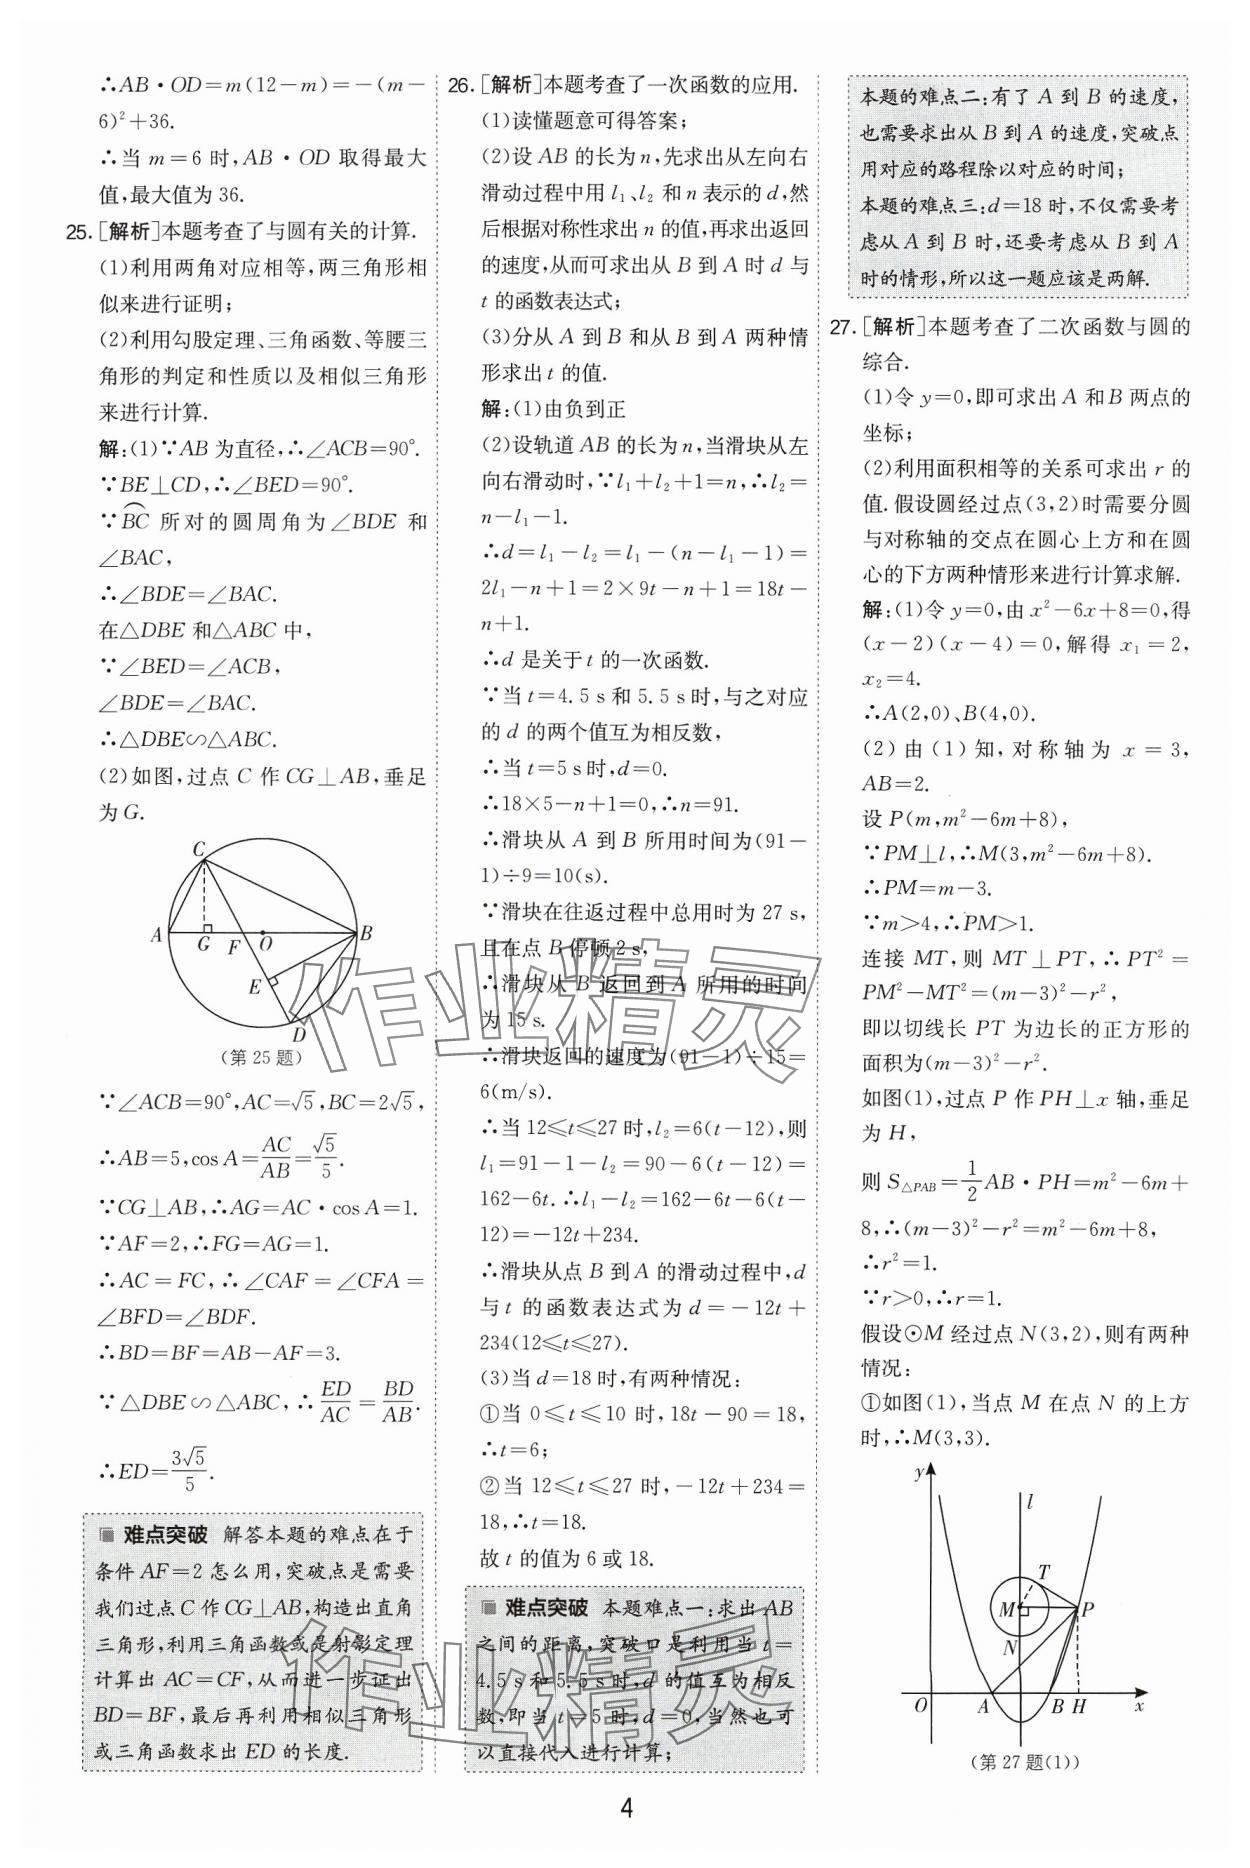 ∴AB·OD=m(12-m)=-(m-
6)²+36.
∴当 m=6 时,AB·OD 取得最大
值,最大值为 36.
25.[解析]本题考查了与圆有关的计算.
(1)利用两角对应相等,两三角形相
似来进行证明;
(2)利用勾股定理、三角函数、等腰三
角形的判定和性质以及相似三角形
来进行计算.
解:(1)∵AB 为直径,∴∠ACB=90°.
∵BE⊥CD,∴∠BED=90°.
∵$\overset{\frown}{BC}$ 所对的圆周角为∠BDE 和
∠BAC,
∴∠BDE=∠BAC.
在△DBE 和△ABC 中,
∵∠BED=∠ACB,
∠BDE=∠BAC.
∴△DBE∽△ABC.
(2)如图,过点 C 作 CG⊥AB,垂足
为 G.
C
A G F O B
E
D
(第 25 题)
∵∠ACB=90°,AC=√5,BC=2√5,
∴AB=5,cos A=$\frac{AC}{AB}$=$\frac{\sqrt{5}}{5}$.
∵CG⊥AB,∴AG=AC·cos A=1.
∵AF=2,∴FG=AG=1.
∴AC=FC,∴∠CAF=∠CFA=
∠BFD=∠BDF.
∴BD=BF=AB-AF=3.
∵△DBE∽△ABC,∴$\frac{ED}{AC}$=$\frac{BD}{AB}$.
∴ED=$\frac{3\sqrt{5}}{5}$.
难点突破 解答本题的难点在于
条件 AF=2 怎么用,突破点是需要
我们过点 C 作 CG⊥AB,构造出直角
三角形,利用三角函数或是射影定理
计算出 AC=CF,从而进一步证出
BD=BF,最后再利用相似三角形
或三角函数求出 ED 的长度.
26.[解析]本题考查了一次函数的应用.
(1)读懂题意可得答案;
(2)设 AB 的长为 n,先求出从左向右
滑动过程中用 l₁、l₂ 和 n 表示的 d,然
后根据对称性求出 n 的值,再求出返回
的速度,从而可求出从 B 到 A 时 d 与
t 的函数表达式;
(3)分从 A 到 B 和从 B 到 A 两种情
形求出 t 的值.
解:(1)由负到正
(2)设轨道 AB 的长为 n,当滑块从左
向右滑动时,∵l₁+l₂+1=n,∴l₂=
n-l₁-1.
∴d=l₁-l₂=l₁-(n-l₁-1)=
2l₁-n+1=2×9t-n+1=18t-
n+1.
∴d 是关于 t 的一次函数.
∵当 t=4.5 s 和 5.5 s 时,与之对应
的 d 的两个值互为相反数,
∴当 t=5 s 时,d=0.
∴18×5-n+1=0,∴n=91.
∴滑块从 A 到 B 所用时间为(91-
1)÷9=10(s).
∵滑块在往返过程中总用时为 27 s,
且在点 B 停顿 2 s,
∴滑块从 B 返回到 A 所用的时间
为 15 s.
∴滑块返回的速度为(91-1)÷15=
6(m/s).
∴当 12≤t≤27 时,l₂=6(t-12),则
l₁=91-1-l₂=90-6(t-12)=
162-6t.∴l₁-l₂=162-6t-6(t-
12)=-12t+234.
∴滑块从点 B 到 A 的滑动过程中,d
与 t 的函数表达式为 d=-12t+
234(12≤t≤27).
(3)当 d=18 时,有两种情况:
①当 0≤t≤10 时,18t-90=18,
∴t=6;
②当 12≤t≤27 时,-12t+234=
18,∴t=18.
故 t 的值为 6 或 18.
难点突破 本题难点一:求出 AB
之间的距离,突破口是利用当 t=
4.5 s 和 5.5 s 时,d 的值互为相反
数,即当 t=5 时,d=0,当然也可
以直接代入进行计算;
本题的难点二:有了 A 到 B 的速度,
也需要求出从 B 到 A 的速度,突破点
用对应的路程除以对应的时间;
本题的难点三:d=18 时,不仅需要考
虑从 A 到 B 时,还要考虑从 B 到 A
时的情形,所以这一题应该是两解.
27.[解析]本题考查了二次函数与圆的
综合.
(1)令 y=0,即可求出 A 和 B 两点的
坐标;
(2)利用面积相等的关系可求出 r 的
值.假设圆经过点(3,2)时需要分圆
与对称轴的交点在圆心上方和在圆
心的下方两种情形来进行计算求解.
解:(1)令 y=0,由 x²-6x+8=0,得
(x-2)(x-4)=0,解得 x₁=2,
x₂=4.
∴A(2,0)、B(4,0).
(2)由(1)知,对称轴为 x=3,
AB=2.
设 P(m,m²-6m+8),
∵PM⊥l,∴M(3,m²-6m+8).
∴PM=m-3.
∵m>4,∴PM>1.
连接 MT,则 MT⊥PT,∴PT²=
PM²-MT²=(m-3)²-r²,
即以切线长 PT 为边长的正方形的
面积为(m-3)²-r².
如图(1),过点 P 作 PH⊥x 轴,垂足
为 H,
则 S△PAB=$\frac{1}{2}$AB·PH=m²-6m+
8,∴(m-3)²-r²=m²-6m+8,
∴r²=1.
∵r>0,∴r=1.
假设⊙M 经过点 N(3,2),则有两种
情况:
①如图(1),当点 M 在点 N 的上方
时,∴M(3,3).
y
l
T
M P
N
O A B H x
(第 27 题(1))
作业精灵
作业精灵
4